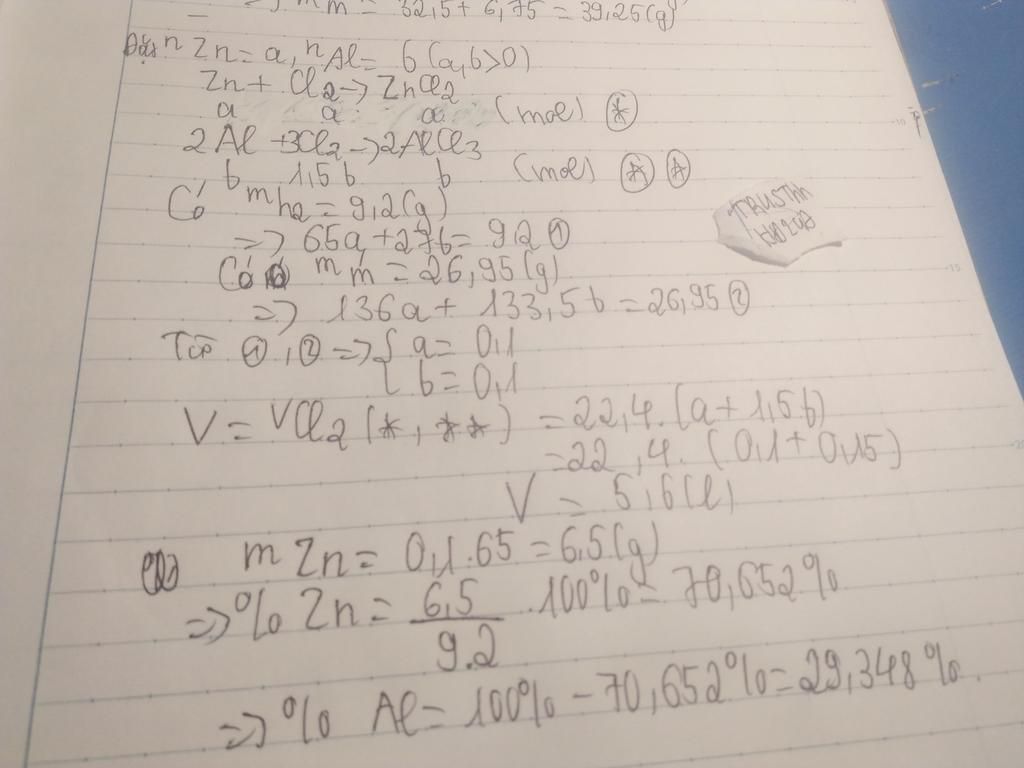 m m = 32,5 + 6,75 = 39,25(g)
Đặt n Zn = a, n Al = b (a,b>0)
Zn + Cl2 -> ZnCl2
a a a (mol) *
2Al + 3Cl2 -> 2AlCl3
b 1,5b b (mol) * *
Có m h2 = 9,2(g)
=> 65a + 27b = 9,2 ①
Có m m = 26,95(g)
=> 136a + 133,5b = 26,95 ②
Từ ①, ② => { a = 0,1
{ b = 0,1
V = VCl2 (*, **) = 22,4.(a + 1,5b)
= 22,4.(0,1 + 0,15)
V = 5,6(l)
m Zn = 0,1.65 = 6,5(g)
=> % Zn = 6,5/9.2 .100% = 70,652%
=> % Al = 100% - 70,652% = 29,348%.